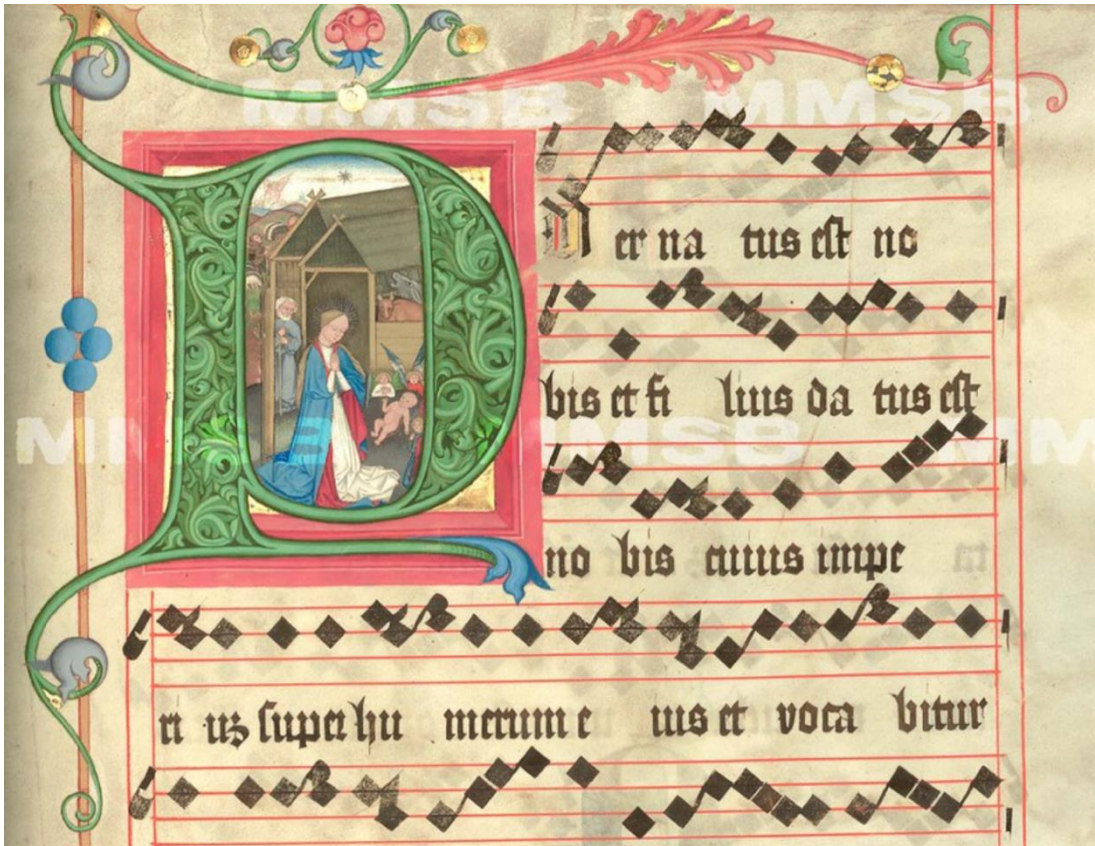 MMSB MMSB
P U er na tus est no
bis et fi lius da tus est
MMSB MMSB MM
no bis cuius impe
ri uʒ super hu merum e ius et voca bitur